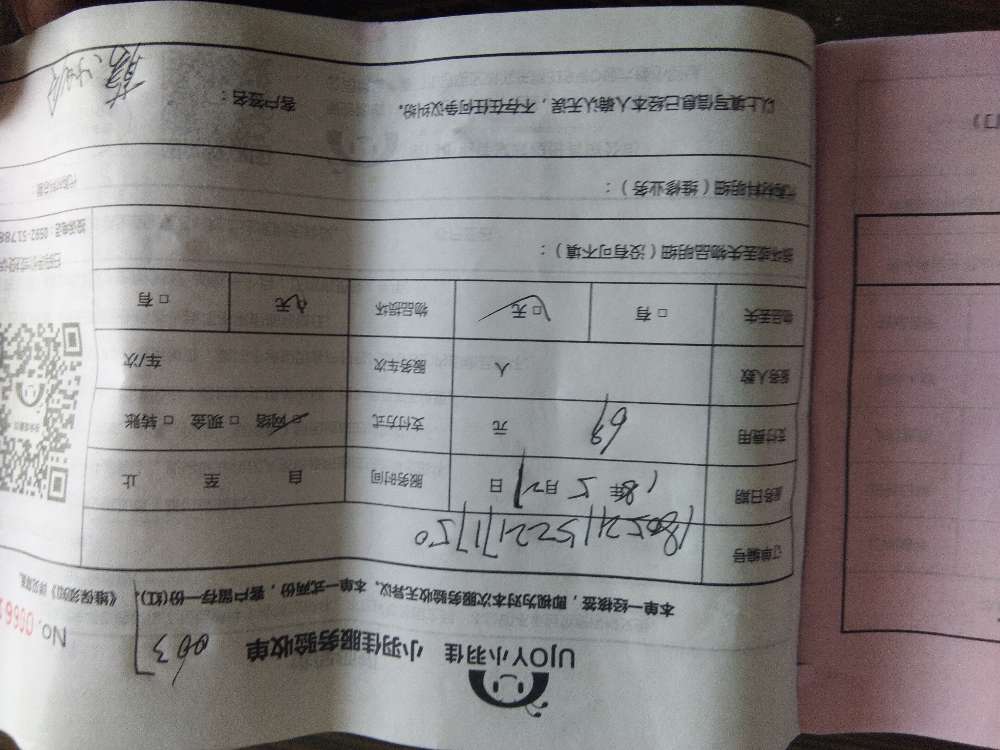 UJOY小羽佳 小羽佳服务验收单
003
No. 0066
本单一经核签，即视为对本次服务验收无异议。本单一式两份，客户留存一份(红)，《维保须知》详见背面。
订单编号 1805211522171750
服务日期 18年5月21日 服务时间 自 至 止
支付费用 69 元 支付方式 ☑网络 □现金 □转账
服务人数 人 服务车次 车/次
物品丢失 □有 ☑无 物品损坏 ☑无 □有
损坏或丢失物品明细（没有可不填）：
投诉电话：0592-51788
代购材料明细（维修业务）：
以上填写信息已经本人确认无误，不存在任何争议纠纷。 客户签名：